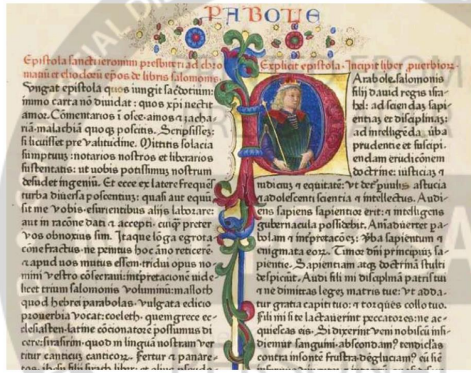 PABOLE
Epistola sancti ieronimi presbiteri ad chro
matiũ et eliodorũ epõs de libris salomonis
Iungat epistola quos iungit sacerdotium
immo carta nõ diuidat: quos xp̃i nectit
amor. Cõmentarios ĩ osee. amos ⁊ zacha
riã. malachiã quoqꝫ poscitis. Scripsissẽ:
si licuisset pre valitudine. Mittitis solacia
sumptuum: notarios nostros et librarios
sustentatis: ut uobis potissimũ nostrum
desudet ingeniũ. Et ecce ex latere frequẽs
turba diuersa poscentiũ: quasi aut equũ
sit me vobis esurientibus alijs laborare:
aut in racõne dati ⁊ accepti. cuiqꝫ preter
vos obnoxius sim. Itaqꝫ lõga egrota
cõne fractus. ne penitus hoc ãno reticerẽ
⁊ apud uos mutus essem. tridui opus no
mini vestro cõsecraui. interpretacionẽ uide
licet trium salomonis voluminũ: masloth
quod hebrei parabolas. vulgata edicio
prouerbia vocat: coeleth. quem grece ec
clesiasten. latine cõcionatorẽ possumus di
cere: sirasirim. quod in linguã nostram ver
titur canticũ canticoꝝ. Fertur ⁊ panare
Explicit epistola. Incipit liber puerbioꝝ
Arabole salomonis
filij dauid regis isra
hel: ad sciendã sapi
entiam et disciplinaz:
ad intelligẽda v̾ba
prudentie et suscipi
endam erudicõnem
doctrine: iusticiaz ⁊
iudiciuz ⁊ equitatẽ: vt det̾ puulis astucia
⁊ adolescenti sciencia ⁊ intellectus. Audi
ens sapiens sapientior erit: ⁊ intelligens
gubernacula possidebit. Anĩaduertet pa
bolam ⁊ interpretacõez: v̾ba sapientum ⁊
enigmata eoꝝ. Timor dñi principiuz sa
pientie. Sapientiam atqꝫ doctrinã stulti
despiciunt. Audi fili mi disciplinã patris tui
⁊ ne dimittas legez matris tue: vt adda
tur gratia capiti tuo: ⁊ torques collo tuo.
Fili mi si te lactauerint peccatores: ne ac
quiescas eis. Si dixerint veni nobiscũ insi
diemur sanguini. abscondam̾ tendiclas
contra insontẽ frustra: deglutiam̾ eũ sic̾